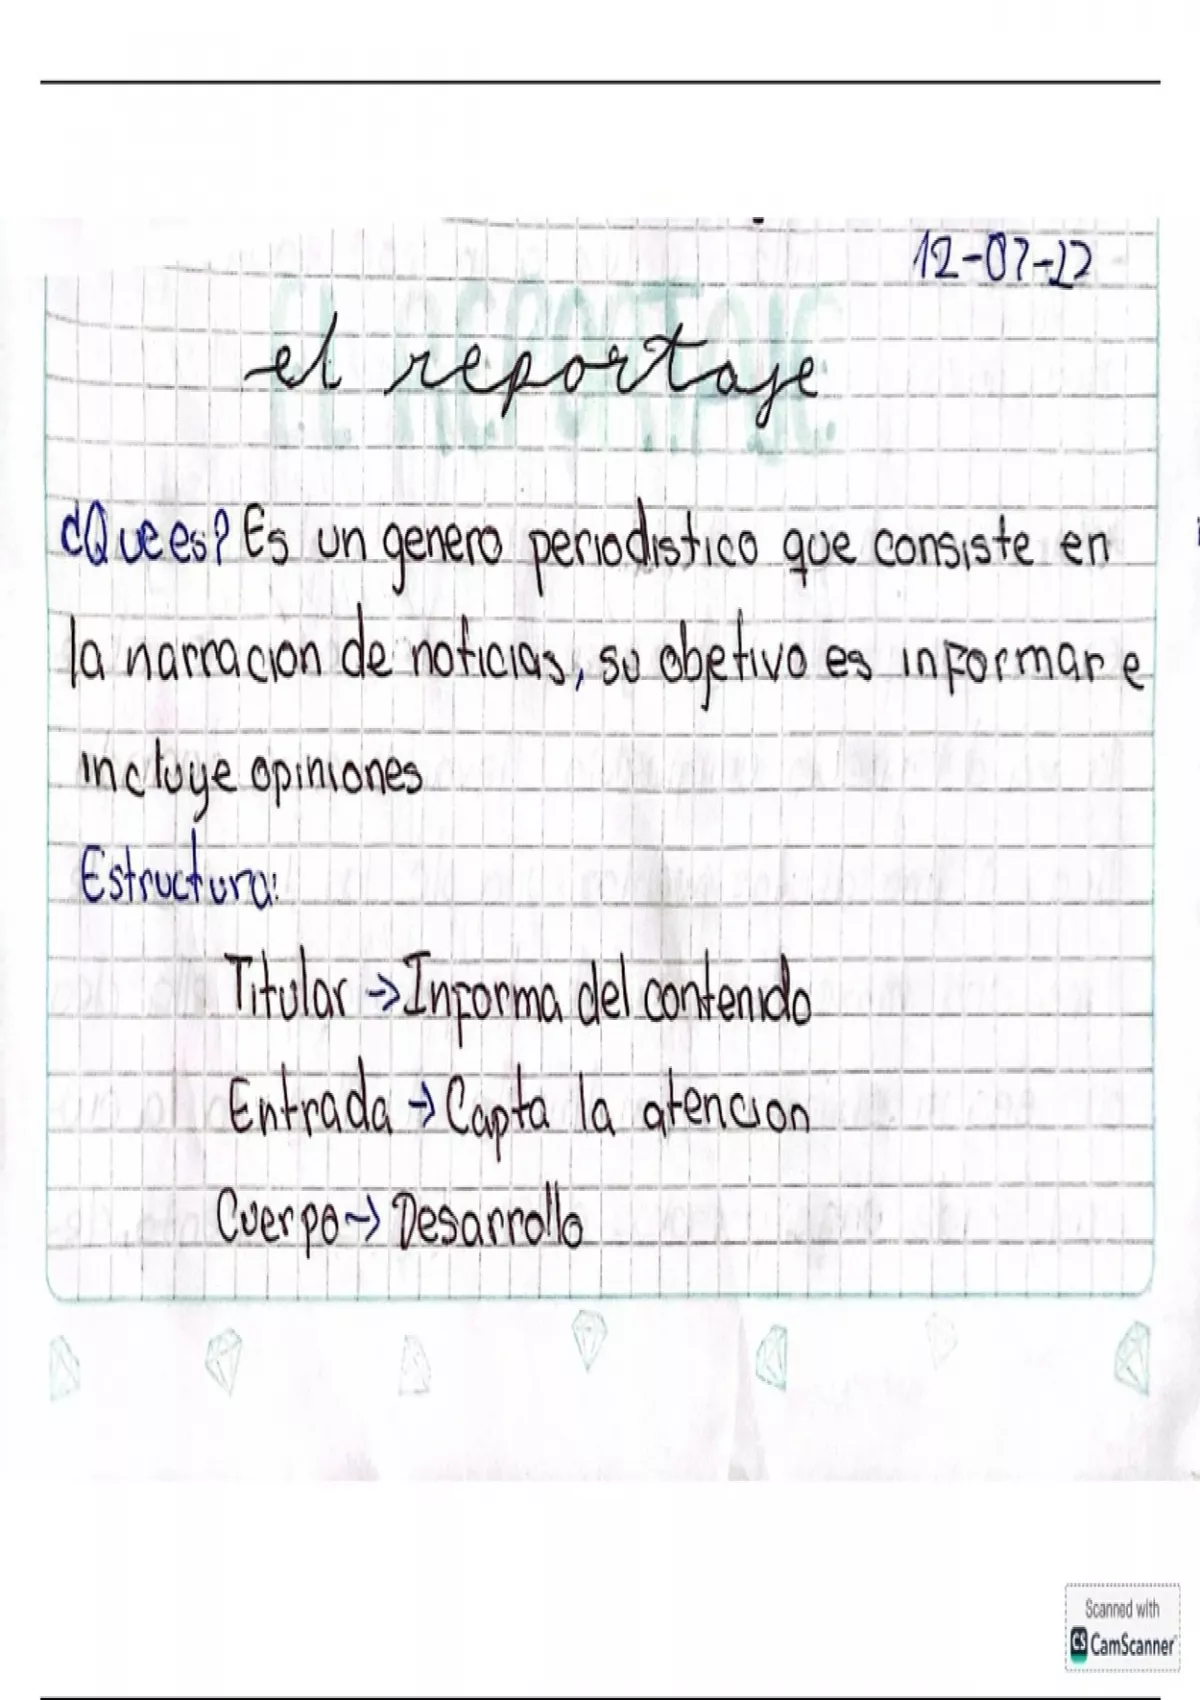 12-07-22
el reportaje
¿Que es? Es un genero periodistico que consiste en
la narracion de noticias, su objetivo es informar e
incluye opiniones
Estructura:
Titular → Informa del contenido
Entrada → Capta la atencion
Cuerpo → Desarrollo
Scanned with
CS CamScanner